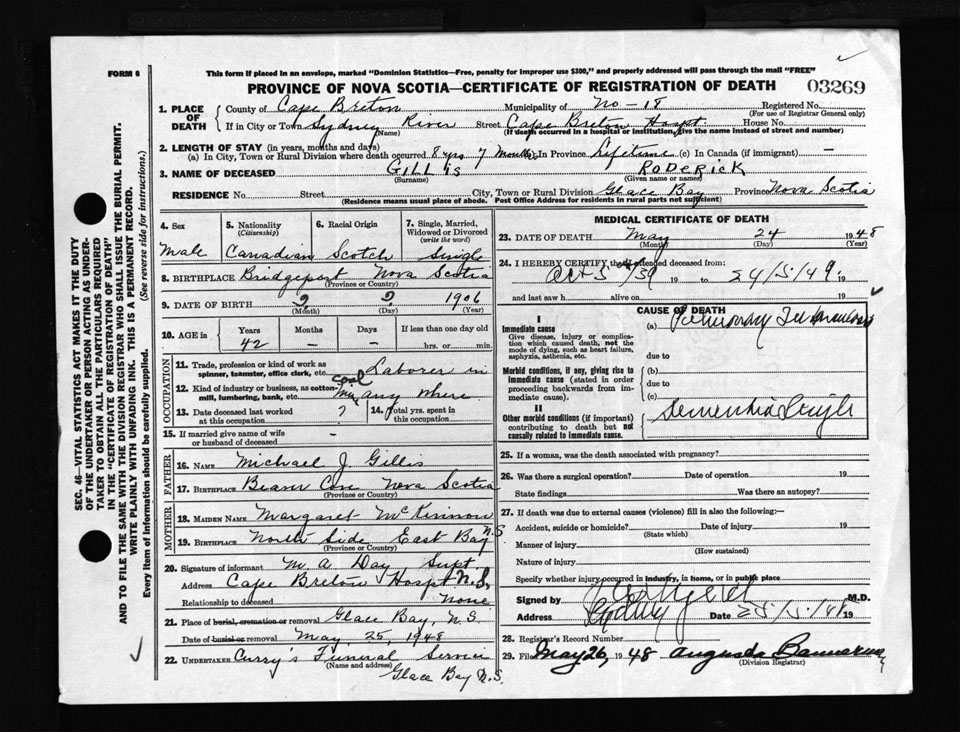 FORM 6
This form if placed in an envelope, marked "Dominion Statistics—Free, penalty for improper use $300," and properly addressed will pass through the mail "FREE"
PROVINCE OF NOVA SCOTIA—CERTIFICATE OF REGISTRATION OF DEATH 03269
1. PLACE OF DEATH County of Cape Breton Municipality of No - 18 Registered No.
(For use of Registrar General only)
If in City or Town Sydney River Street Cape Breton Hospt. House No.
(Name) (If death occurred in a hospital or institution, give the name instead of street and number)
2. LENGTH OF STAY (in years, months and days)
(a) In City, Town or Rural Division where death occurred 8 yrs 7 months (b) In Province Lifetime (c) In Canada (if immigrant) —
3. NAME OF DECEASED GILLIS RODERICK
(Surname) (Given name or names)
RESIDENCE No. Street City, Town or Rural Division Glace Bay Province Nova Scotia
(Residence means usual place of abode. Post Office Address for residents in rural parts not sufficient)
4. Sex 5. Nationality 6. Racial Origin 7. Single, Married, Widowed or Divorced
(Citizenship) (write the word)
Male Canadian Scotch Single
8. BIRTHPLACE Bridgeport Nova Scotia
(Province or Country)
9. DATE OF BIRTH ? ? 1906
(Month) (Day) (Year)
10. AGE in Years Months Days If less than one day old
42 – – hrs. or min.
OCCUPATION
11. Trade, profession or kind of work as spinner, teamster, office clerk, etc. Laborer in
12. Kind of industry or business, as cotton-mill, lumbering, bank, etc. Coal Mine any where
13. Date deceased last worked at this occupation ? 14. Total yrs. spent in this occupation
15. If married give name of wife or husband of deceased –
FATHER
16. NAME Michael J. Gillis
17. BIRTHPLACE Beaver Cove Nova Scotia
(Province or Country)
MOTHER
18. MAIDEN NAME Margaret McKinnon
19. BIRTHPLACE North Side East Bay N.S
(Province or Country)
20. Signature of informant M. A. Day Supt
Address Cape Breton Hospt N.S.
Relationship to deceased None
21. Place of burial, cremation or removal Glace Bay, N.S.
Date of burial or removal May 25, 1948
22. UNDERTAKER Curry's Funeral Service
(Name and address)
Glace Bay N.S.
MEDICAL CERTIFICATE OF DEATH
23. DATE OF DEATH May 24 1948
(Month) (Day) (Year)
24. I HEREBY CERTIFY that I attended deceased from:
Oct 5 /39 19 to 24/5/49 19
and last saw h alive on 19
CAUSE OF DEATH
I
Immediate cause
Give disease, injury or complication which caused death, not the mode of dying, such as heart failure, asphyxia, asthenia, etc.
(a) Pulmonary Tuberculosis
due to
Morbid conditions, if any, giving rise to immediate cause (stated in order proceeding backwards from immediate cause).
(b)
due to
(c)
II
Other morbid conditions (if important) contributing to death but not causally related to immediate cause.
Dementia
25. If a woman, was the death associated with pregnancy?
26. Was there a surgical operation? Date of operation 19
State findings Was there an autopsy?
27. If death was due to external causes (violence) fill in also the following:—
Accident, suicide or homicide? Date of injury 19
(State which)
Manner of injury
(How sustained)
Nature of injury
Specify whether injury occurred in industry, in home, or in public place
Signed by M.D.
Address Sydney Date 25/5/48 19
28. Registrar's Record Number
29. Filed May 26, 1948 Augusta
(Division Registrar)
SEC. 46—VITAL STATISTICS ACT MAKES IT THE DUTY
OF THE UNDERTAKER OR PERSON ACTING AS UNDER-
TAKER TO OBTAIN ALL THE PARTICULARS REQUIRED
IN THE "CERTIFICATE OF REGISTRATION OF DEATH"
AND TO FILE THE SAME WITH THE DIVISION REGISTRAR WHO SHALL ISSUE THE BURIAL PERMIT.
WRITE PLAINLY WITH UNFADING INK. THIS IS A PERMANENT RECORD.
Every item of Information should be carefully supplied. (See reverse side for instructions.)